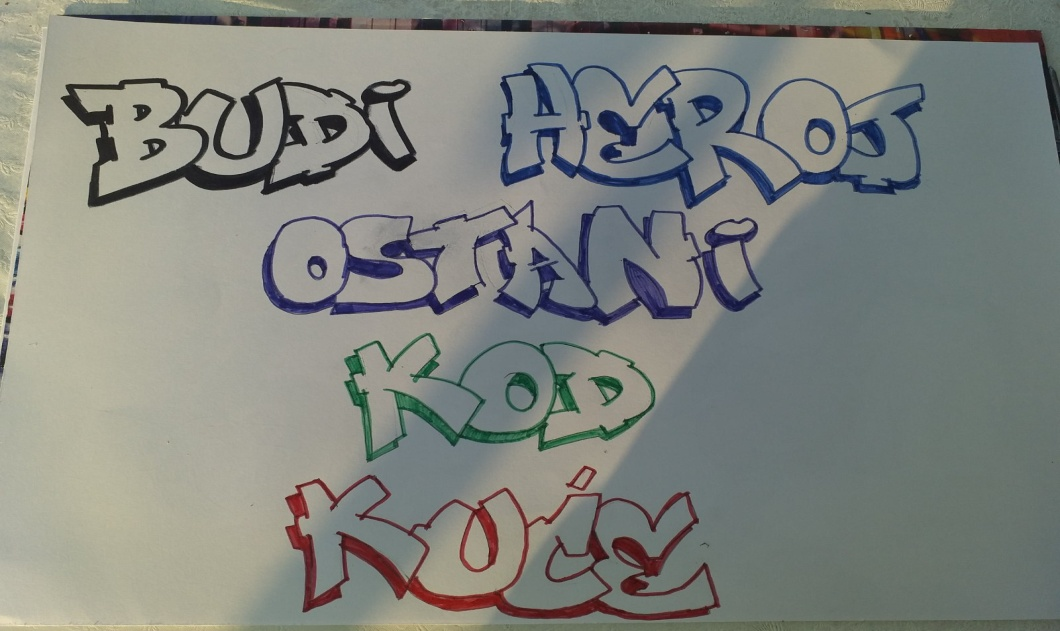 BUDI HEROJ
OSTANI
KOD
KUĆE